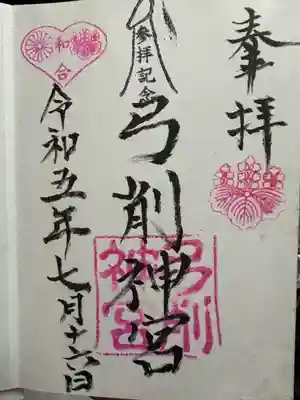 奉拝
参拝記念
弓削神宮
弓削神宮
和合
令和五年七月十六日